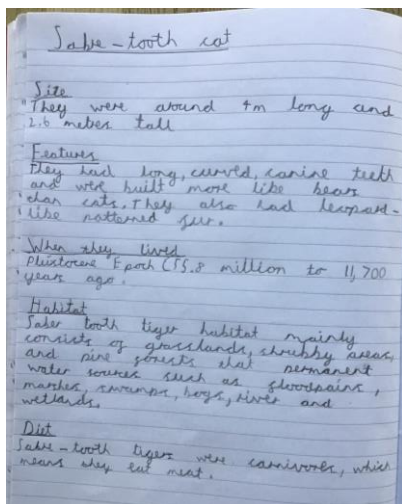 Sabre-tooth cat
Size
They were around 4m long and
2.6 metres tall
Features
They had long, curved, canine teeth
and were built more like bears
than cats. They also had leopard-
like patterned fur.
When they lived
Pleistocene Epoch (55.8 million to 11,700
years ago.
Habitat
Saber tooth tiger habitat mainly
consists of grasslands, shrubby areas,
and pine forests that permanent
water sources such as floodpains,
marshes, swamps, bogs, river and
wetlands.
Diet
Sabre-tooth tigers were carnivores, which
means they eat meat.